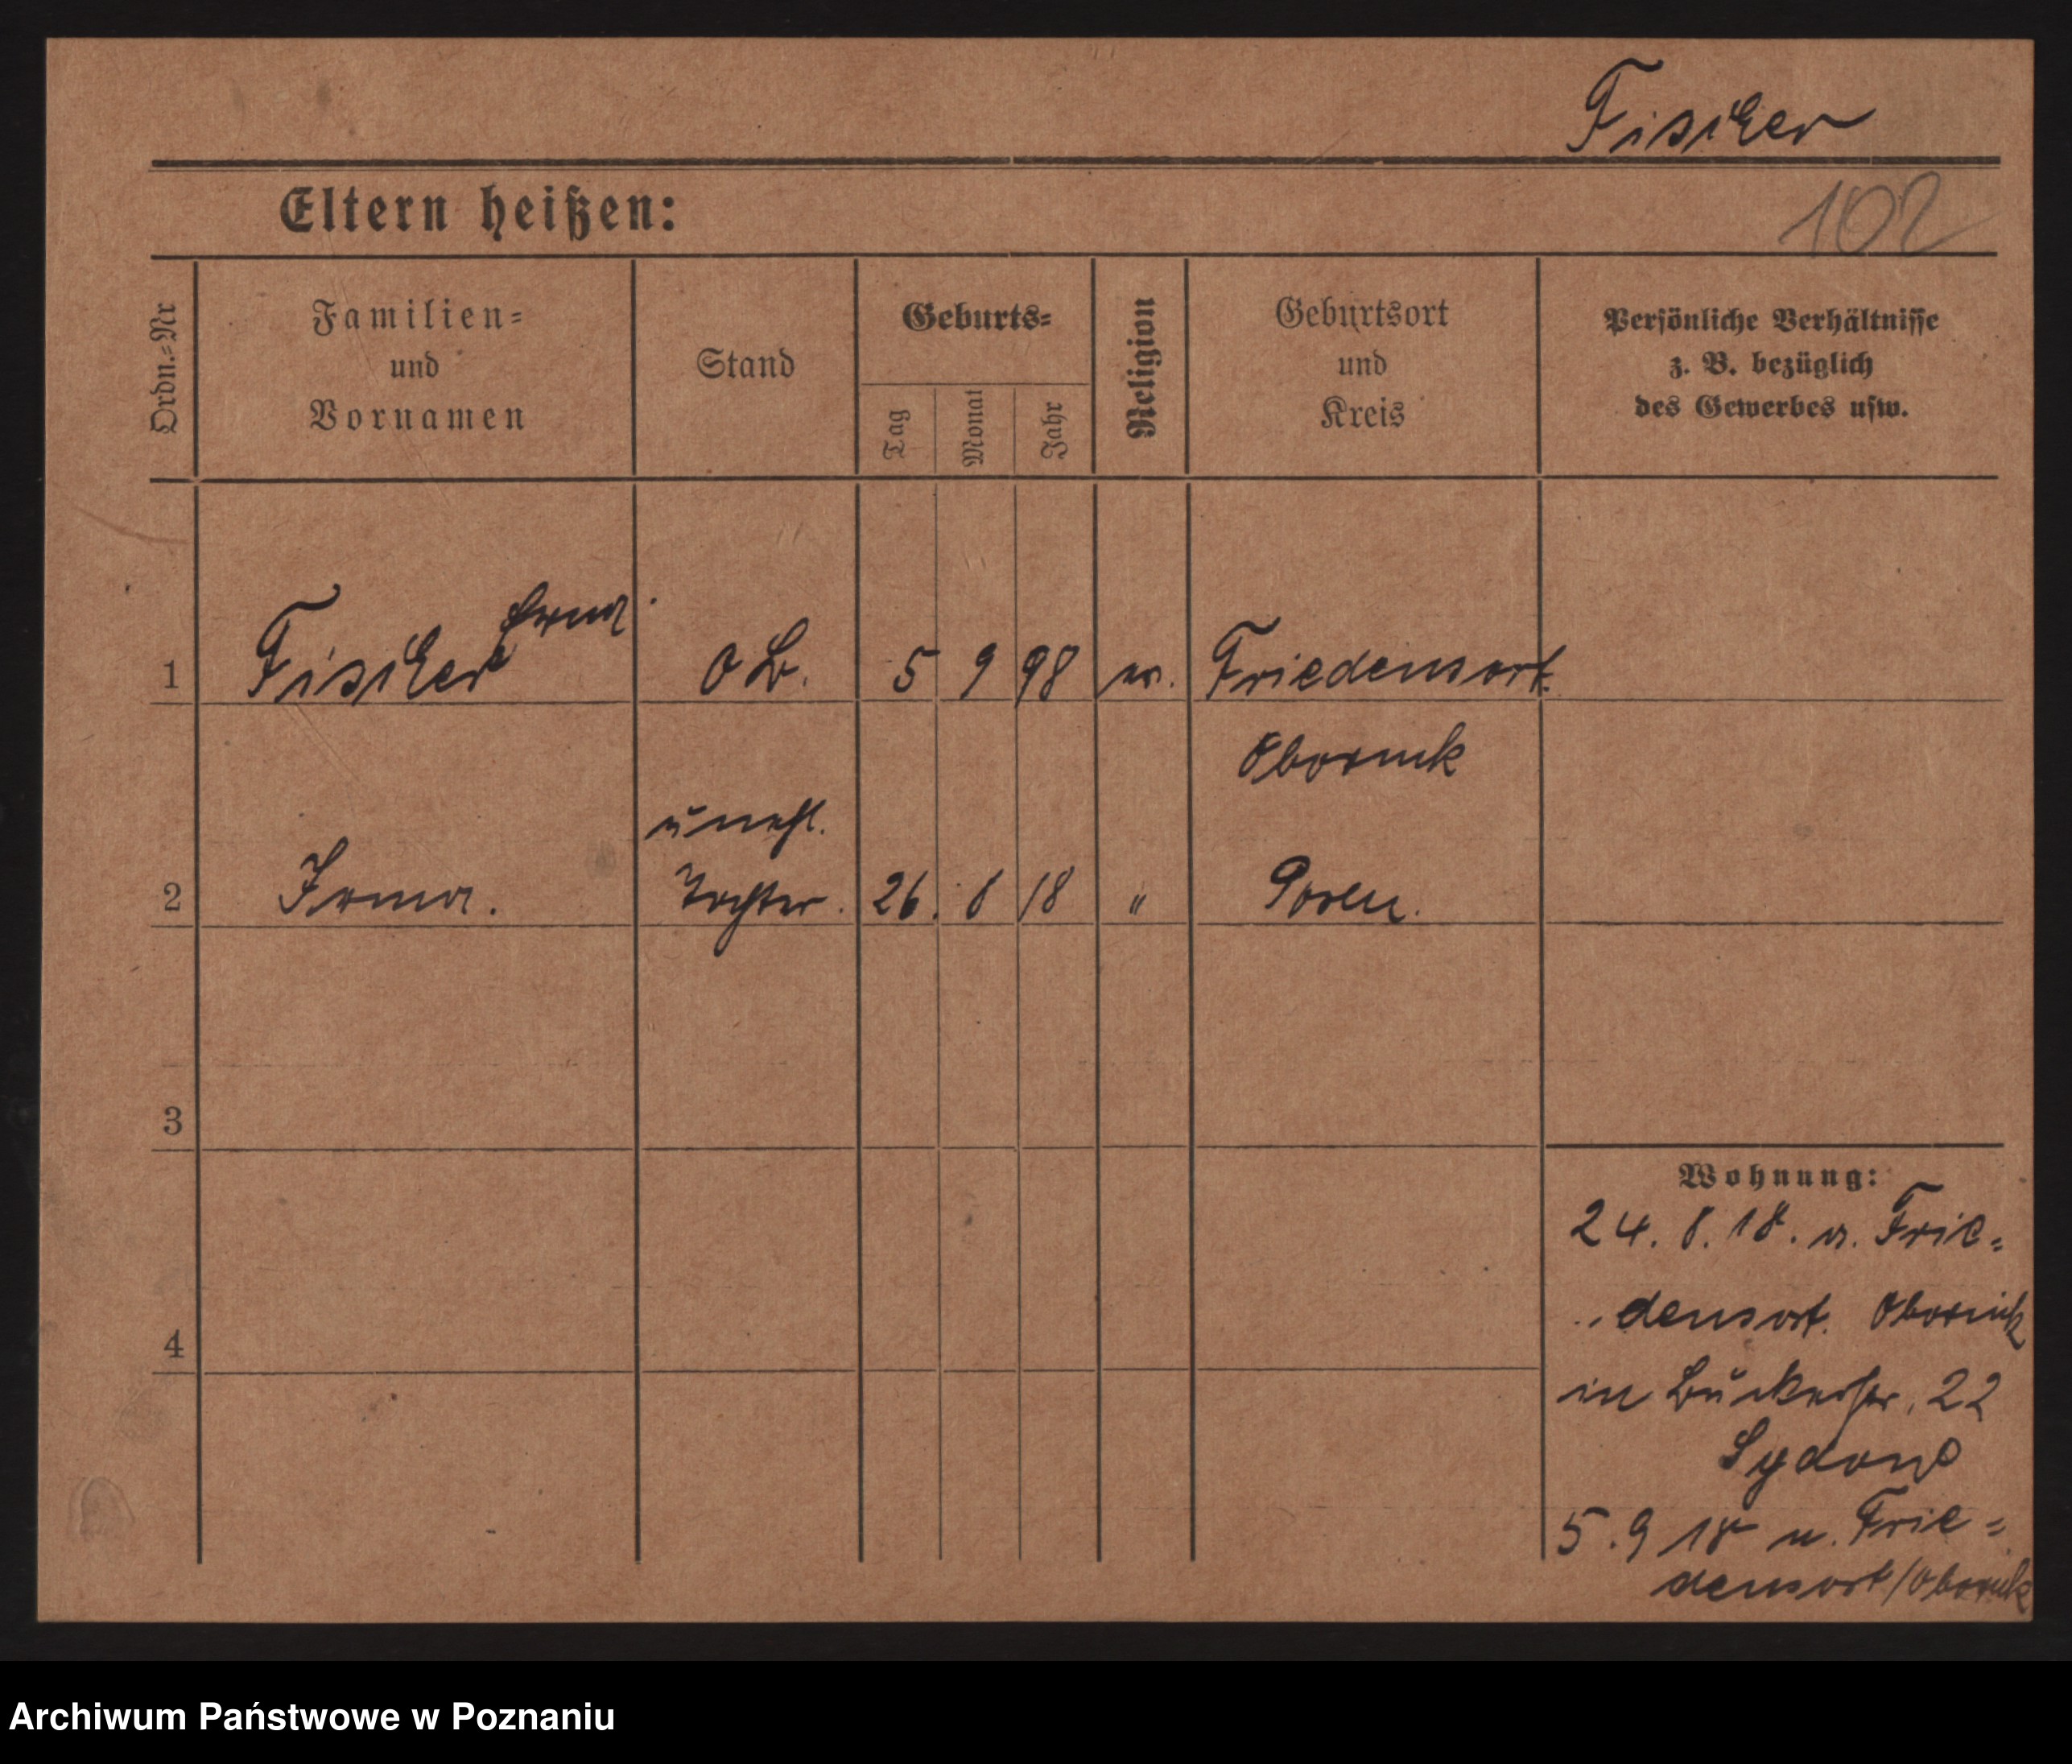 Fischer
102
Eltern heißen:
Ordn.=Nr
Familien=
und
Vornamen
Stand
Geburts=
Tag
Monat
Jahr
Religion
Geburtsort
und
Kreis
Persönliche Verhältnisse
z. B. bezüglich
des Gewerbes usw.
1 Fischer O B. 5 9 98 ev. Friedensort.
Obornik
unehl.
2 Irma. Tochter. 26. 8 18 " Posen.
3
4
Wohnung:
24. 8. 18. v. Frie=
densort. Obornik
in Bukerstr. 22
Sydow
5. 9 18 n. Frie=
densort/Obornik
Archiwum Państwowe w Poznaniu